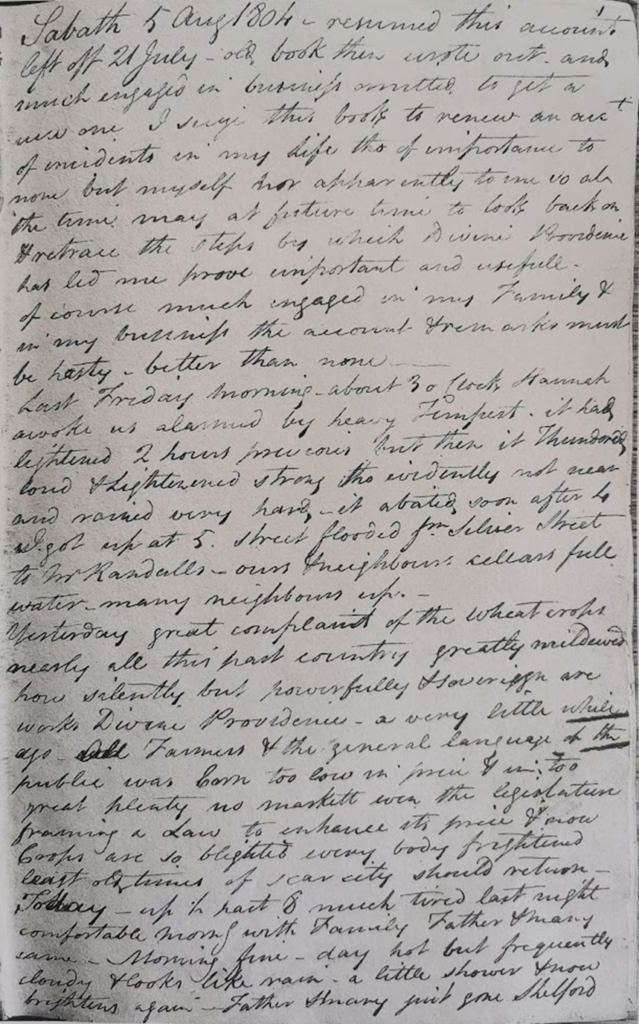 Sabath 5 Aug 1804 - resumed this account
left off 21 July - old book then wrote out. and
much engaged in business omitted to get a
new one I this book to renew an acct
of incidents in my life tho of importance to
none but myself nor apparently to me so at
the time may at future time to look back on
& retrace the steps by which Divine Providence
has led me prove important and usefull -
of course much engaged in my Family &
in my business the account & remarks must
be hasty - better than none
Last Friday morning - about 3 o Clock Hannah
awoke us alarmed by heavy Tempest. it had
lightened 2 hours previous but then it Thundered
loud & Lightenened strong tho evidently not near
and rained very hard - it abated soon after 4
I got up at 5. street flooded fm Silver Street
to Mr Randalls - ours & neighbours cellars full
water - many neighbours up. -
Yesterday great complaints of the wheat crops
nearly all this part country greatly mildewed
how silently but powerfully & sovereign are
works Divine Providence - a very little while
ago - all Farmers & the general language of the
public was Corn too low in price & in too
great plenty no markett even the legislature
framing a Law to enhance its price & now
Crops are so blighted every body frightened
least old times of scarcity should return -
Today - up ½ past 8 much tired last night
comfortable morng with Family Father & Mary
came - Morning fine - day hot but frequently
cloudy & looks like rain - a little shower & now
brightens again - Father & Mary just gone Shelford